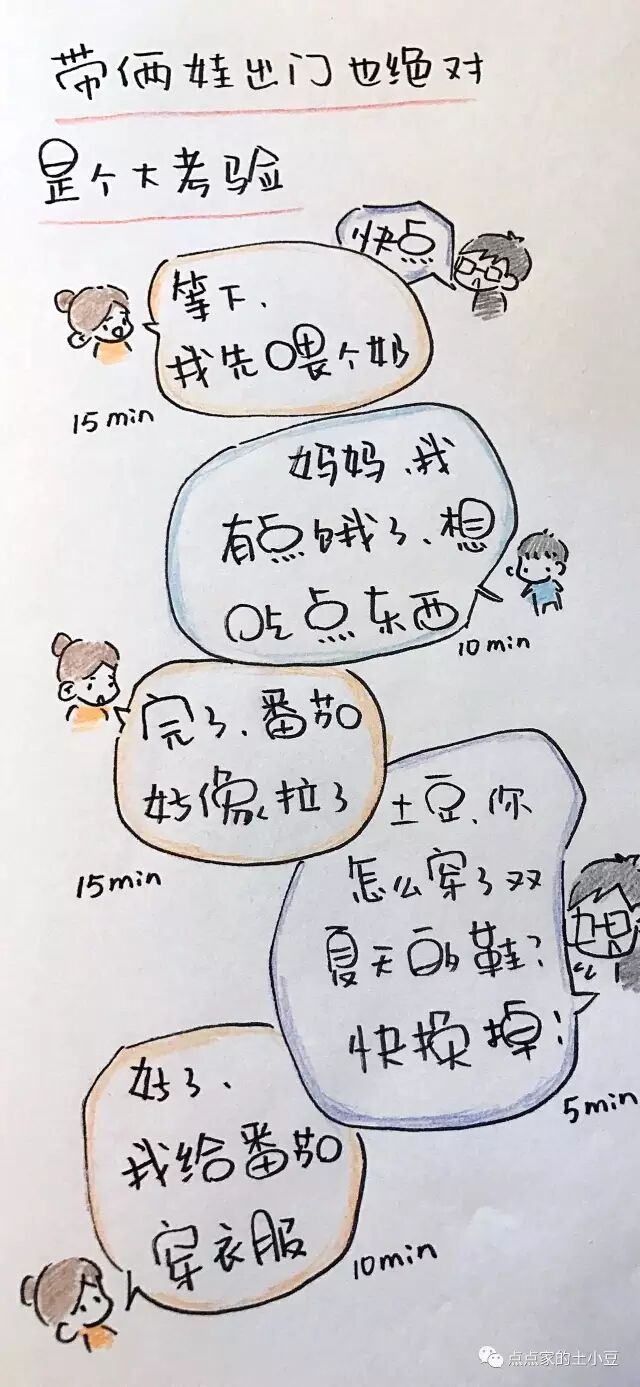 带俩娃出门也绝对
是个大考验
快点
等下、
我先喂个奶
15min
妈妈、我
有点饿了、想
吃点东西
10min
完了、番茄
好像拉了
15min
土豆、你
怎么穿了双
夏天的鞋?
快换掉!
5min
好了、
我给番茄
穿衣服
10min
点点家的土小豆